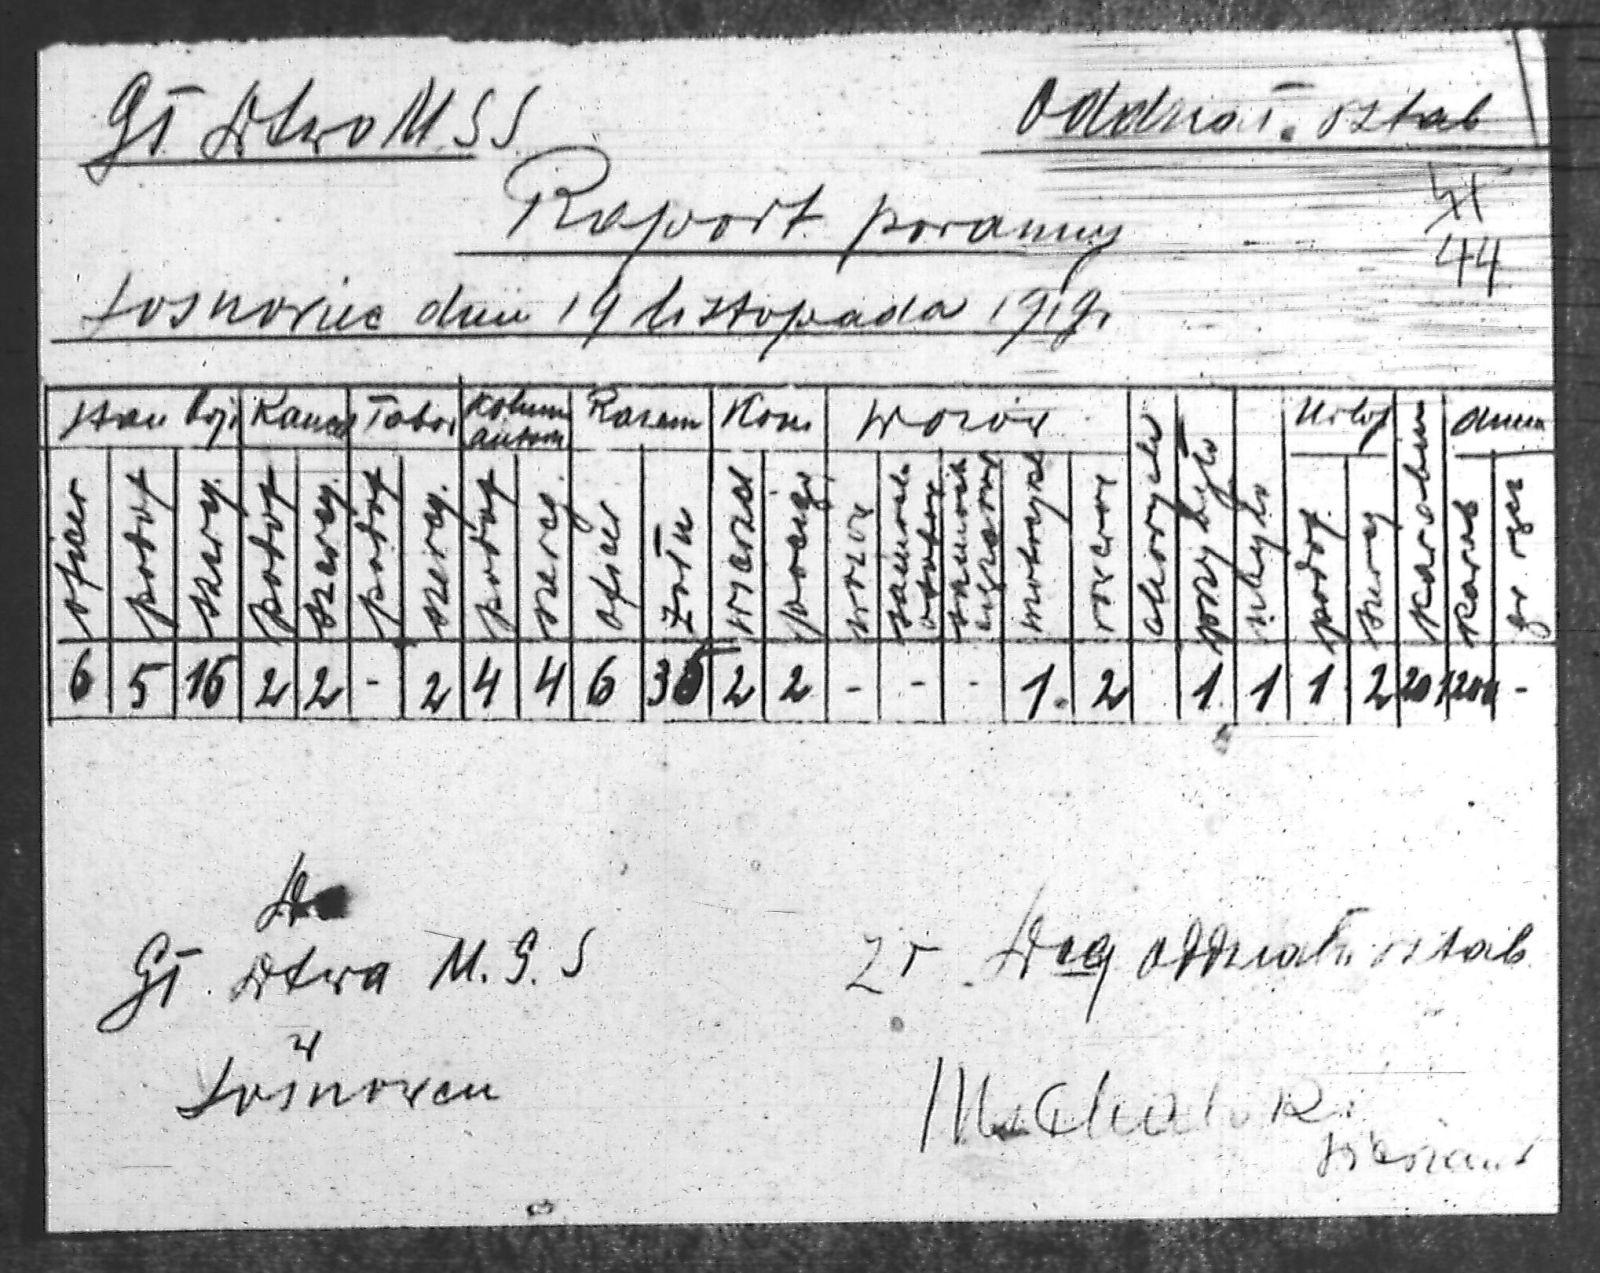 Gł Dtwo M S S
Oddział. sztab
Raport poranny
44
Sosnowiec dnia 19 listopada 1919.
Stan Kancel Tabor Kolumn autom Razem Koni Wozów Urlop amun
oficer podof szereg. podof szereg. podof szereg. podof szereg oficer żołn wierzch pociąg wozów motocykl rowerów chorych przybyło ubyło podof. szereg karabin karab
6 5 16 2 2 - 2 4 4 6 35 2 2 - - - 1. 2 1 1 1 2 20 1200 -
Do
Gł. Dtwa M. S. S
w
Sosnowcu
Dcę Oddziału sztab.